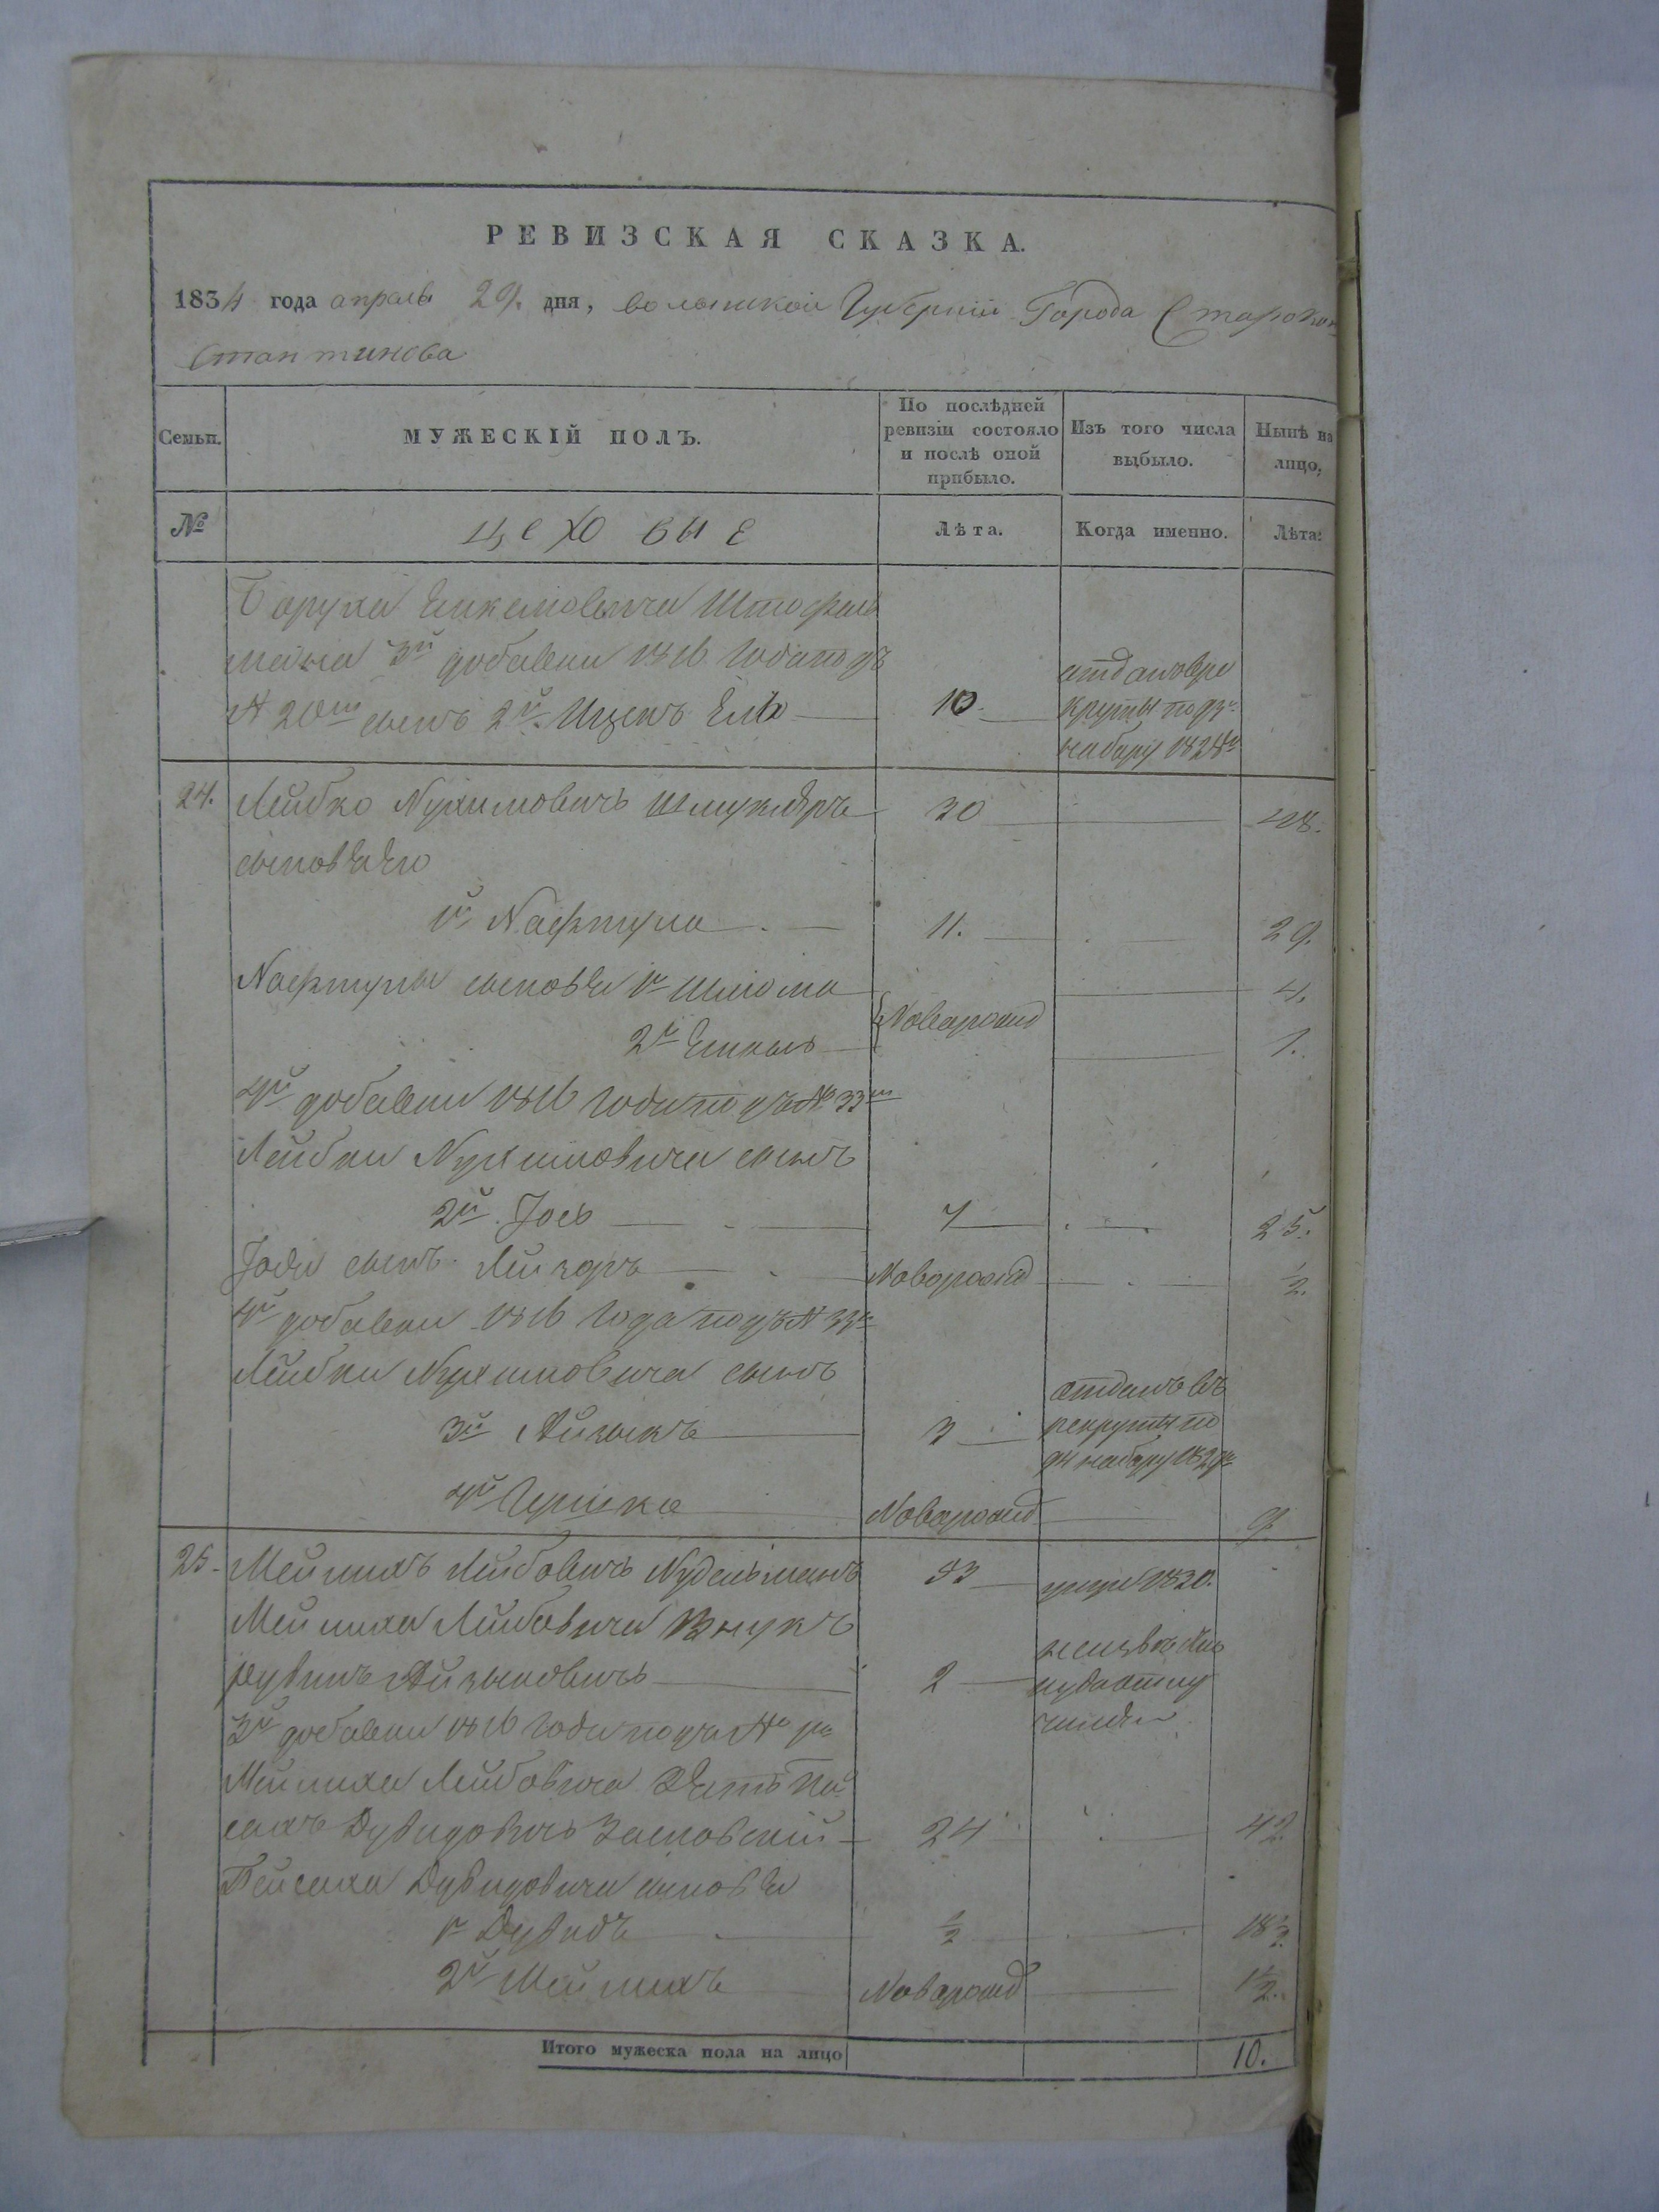 РЕВИЗСКАЯ СКАЗКА.
1834 года апреля 29. дня, волынской Губернии Города Старокон
стантинова
Семьи. МУЖЕСКІЙ ПОЛЪ. По послѣдней ревизіи состояло и послѣ оной прибыло. Изъ того числа выбыло. Нынѣ на лицо.
№ цеховые Лѣта. Когда именно. Лѣта.
Боруха Штофель
мана 3й добавки 1816 Года подъ
№ 20м сынъ 2й Ицекъ Ель 10. отданъ в ре
круты по
набору 1828
24. Лейбко Нухимовичъ 30 48.
сыновья Его
1й Нафтула 11. 29.
Нафтулы сыновья 1й Шлюма 4.
Новорожд
2й Енкель 1.
4й добавки 1816 Года подъ № 33м
Лейбки Нухимовича сынъ
2й Іось 7 25.
сынъ Лейзоръ Новорожд ½.
4й добавки 1816 Года подъ № 33м
Лейбки Нухимовича сынъ
3й Айзыкъ 3 отданъ въ
рекруты по
набору
4й Гершко Новорожд 9.
25. Мейлихъ Лейбовичъ Нудельманъ 53 умре 1820.
Мейлиха Лейбовича внукъ
Рувинъ Айзыковичъ 2
3й добавки 1816 Года подъ №
Мейлиха Лейбовича зять Пей
сахъ Дувидовичъ Заславский 24 42.
Пейсаха Дувидовича сыновья
1й Дувидъ ½ 18½.
2й Мейлихъ Новорожд 1½.
Итого мужеска пола на лицо 10.